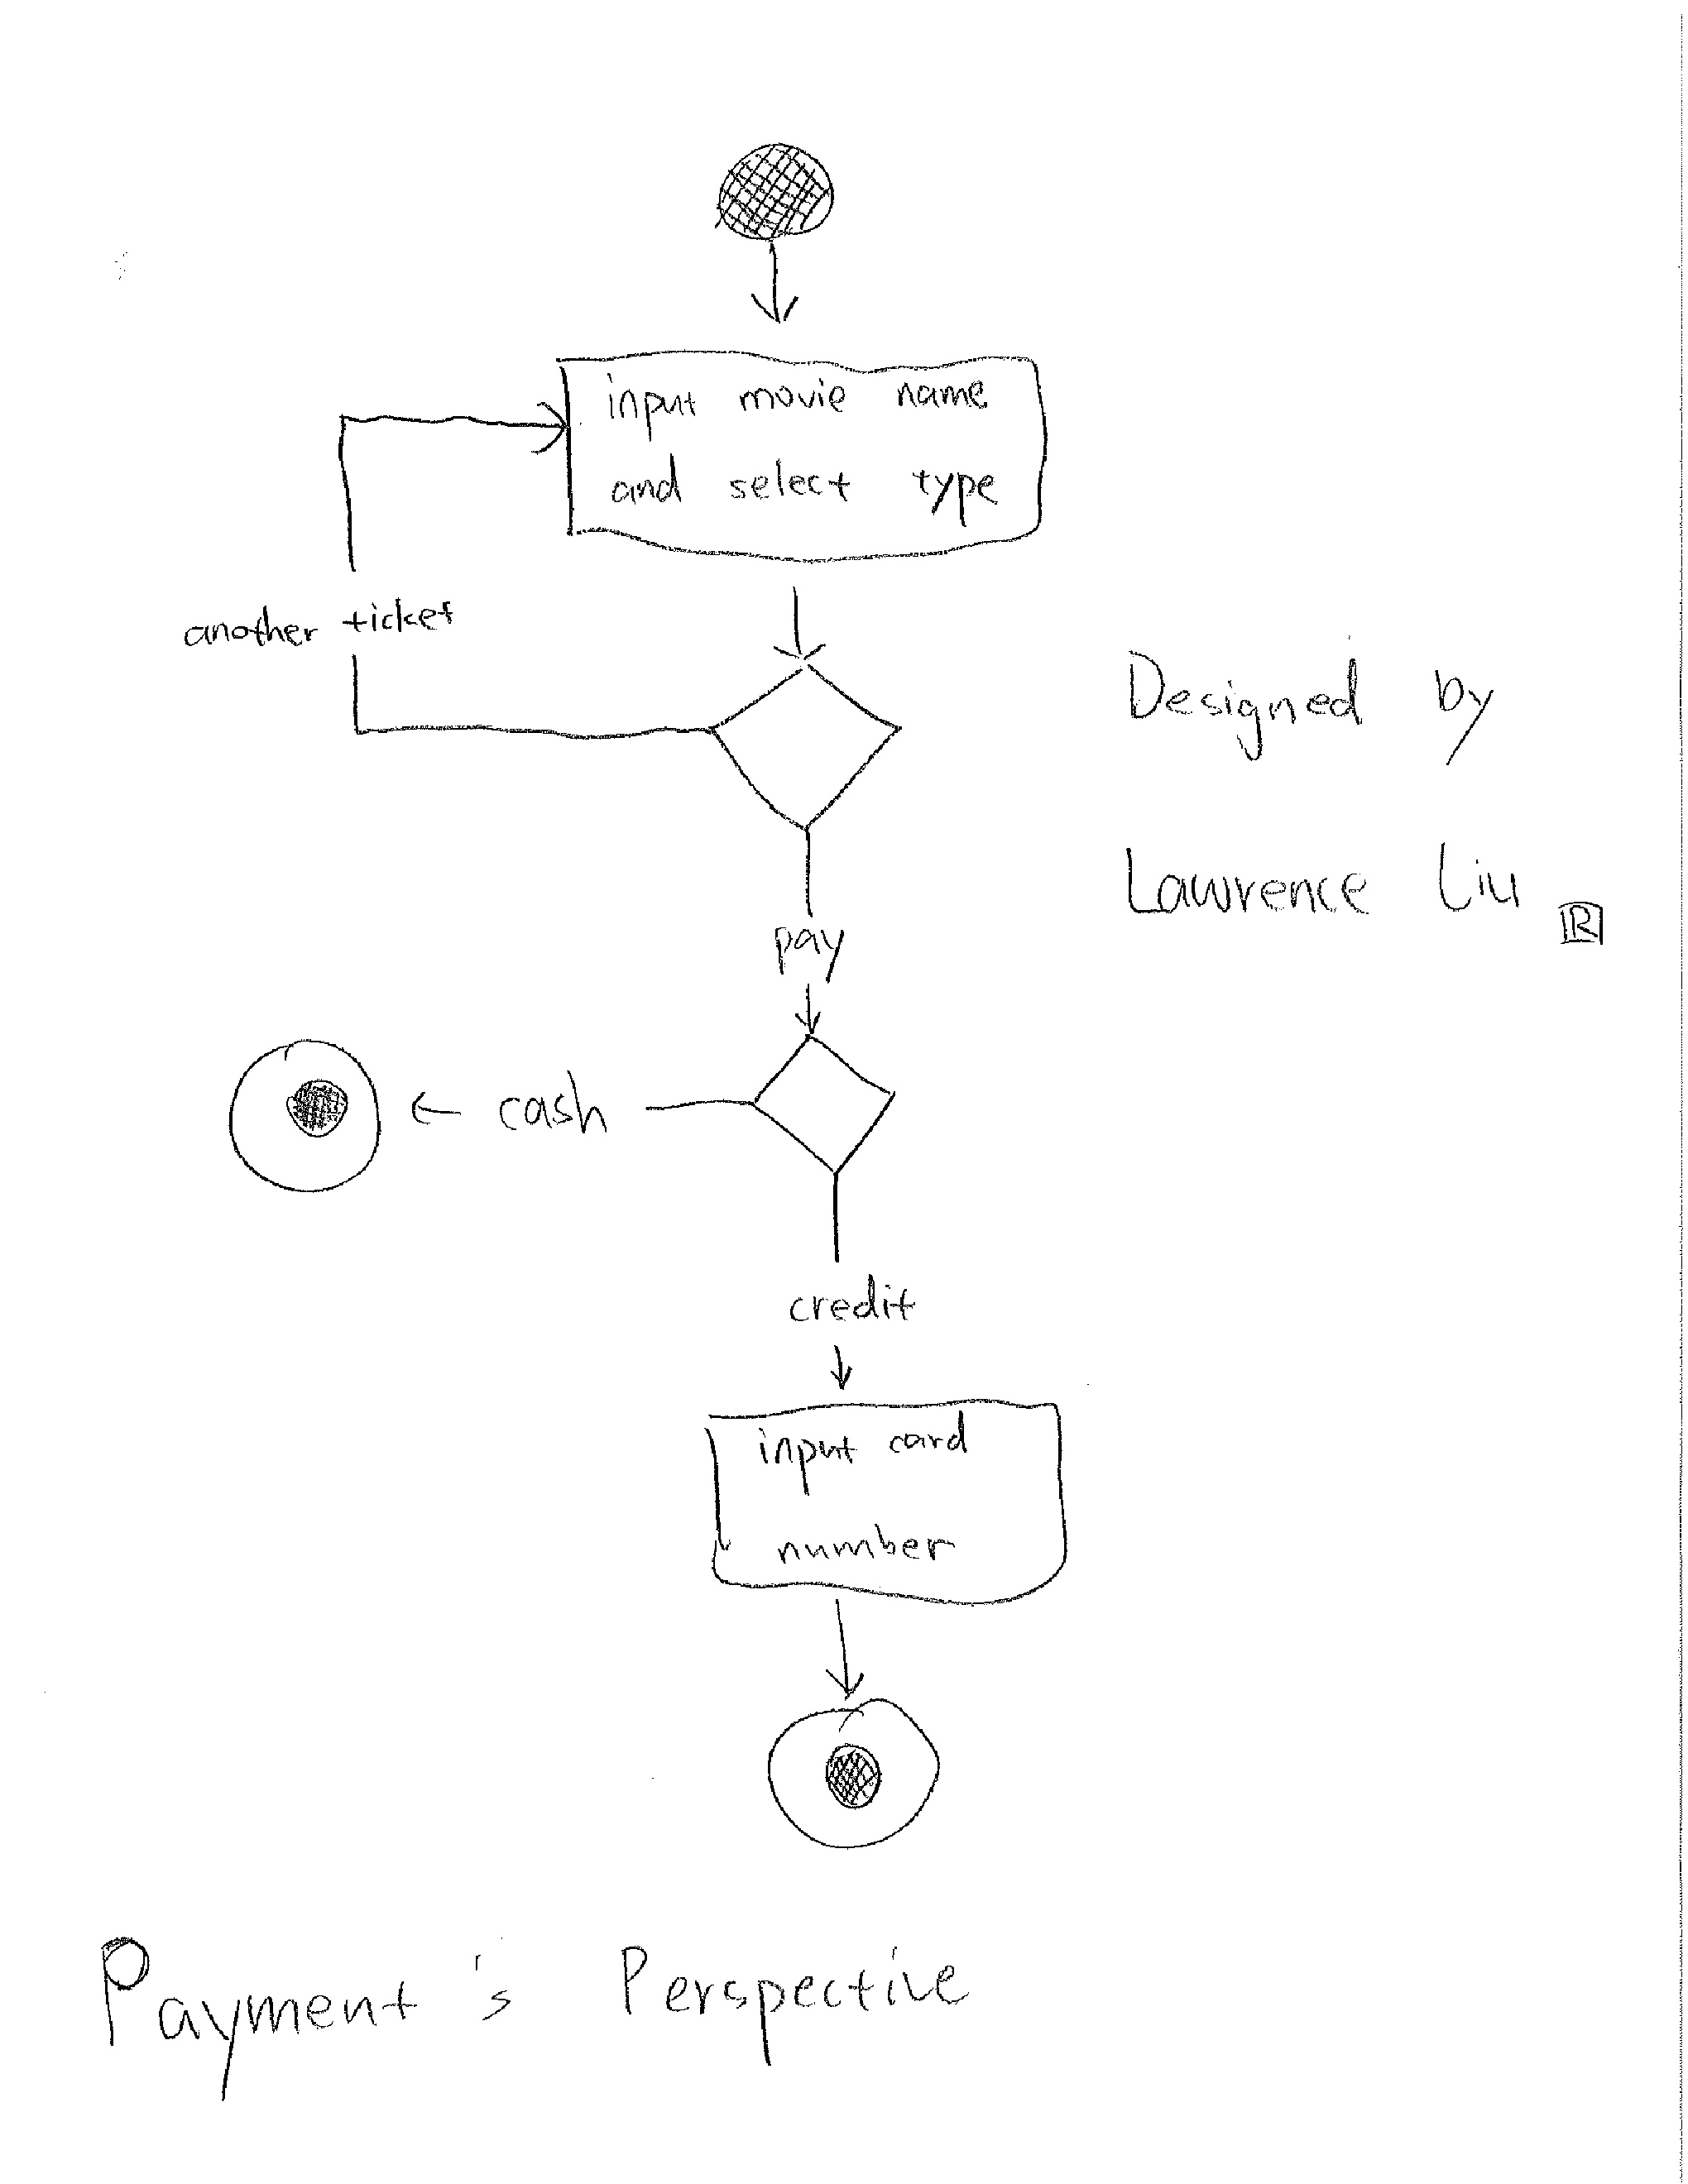 input movie name
and select type
another ticket
Designed by
Lawrence Liu
R
pay
← cash
credit
input card
number
Payment's Perspective